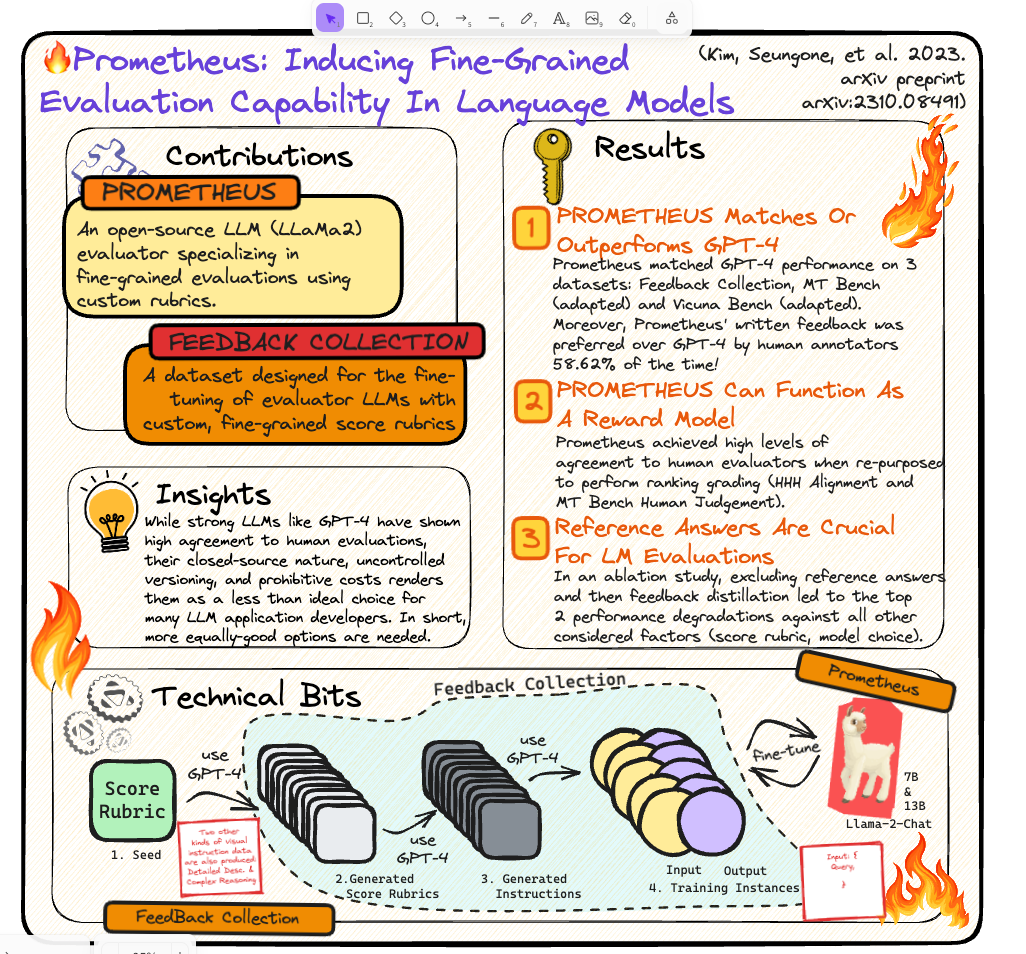 2
3
4
5
6
7
A
8
9
0
Prometheus: Inducing Fine-Grained
Evaluation Capability In Language Models
(Kim, Seungone, et al. 2023.
arXiv preprint
arXiv:2310.08491)
Contributions
PROMETHEUS
An open-source LLM (LLaMa2)
evaluator specializing in
fine-grained evaluations using
custom rubrics.
FEEDBACK COLLECTION
A dataset designed for the fine-
tuning of evaluator LLMs with
custom, fine-grained score rubrics
Insights
While strong LLMs like GPT-4 have shown
high agreement to human evaluations,
their closed-source nature, uncontrolled
versioning, and prohibitive costs renders
them as a less than ideal choice for
many LLM application developers. In short,
more equally-good options are needed.
Results
1
PROMETHEUS Matches Or
Outperforms GPT-4
Prometheus matched GPT-4 performance on 3
datasets: Feedback Collection, MT Bench
(adapted) and Vicuna Bench (adapted).
Moreover, Prometheus' written feedback was
preferred over GPT-4 by human annotators
58.62% of the time!
2
PROMETHEUS Can Function As
A Reward Model
Prometheus achieved high levels of
agreement to human evaluators when re-purposed
to perform ranking grading (HHH Alignment and
MT Bench Human Judgement).
3
Reference Answers Are Crucial
For LM Evaluations
In an ablation study, excluding reference answers
and then feedback distillation led to the top
2 performance degradations against all other
considered factors (score rubric, model choice).
Technical Bits
Feedback Collection
Prometheus
Score
Rubric
1. Seed
use
GPT-4
Two other
kinds of visual
instruction data
are also produced:
Detailed Desc. &
Complex Reasoning
2.Generated
Score Rubrics
use
GPT-4
3. Generated
Instructions
use
GPT-4
Input Output
4. Training Instances
fine-tune
7B
&
13B
Llama-2-Chat
Input: {
Query,
}
FeedBack Collection